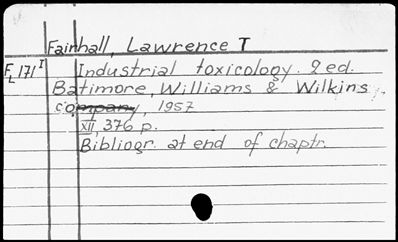 Fainhall, Lawrence T
FL 171 I Industrial toxicology. 2 ed.
Batimore, Williams & Wilkins,
company, 1957
XII, 376 p.
Bibliogr. at end of chaptr.